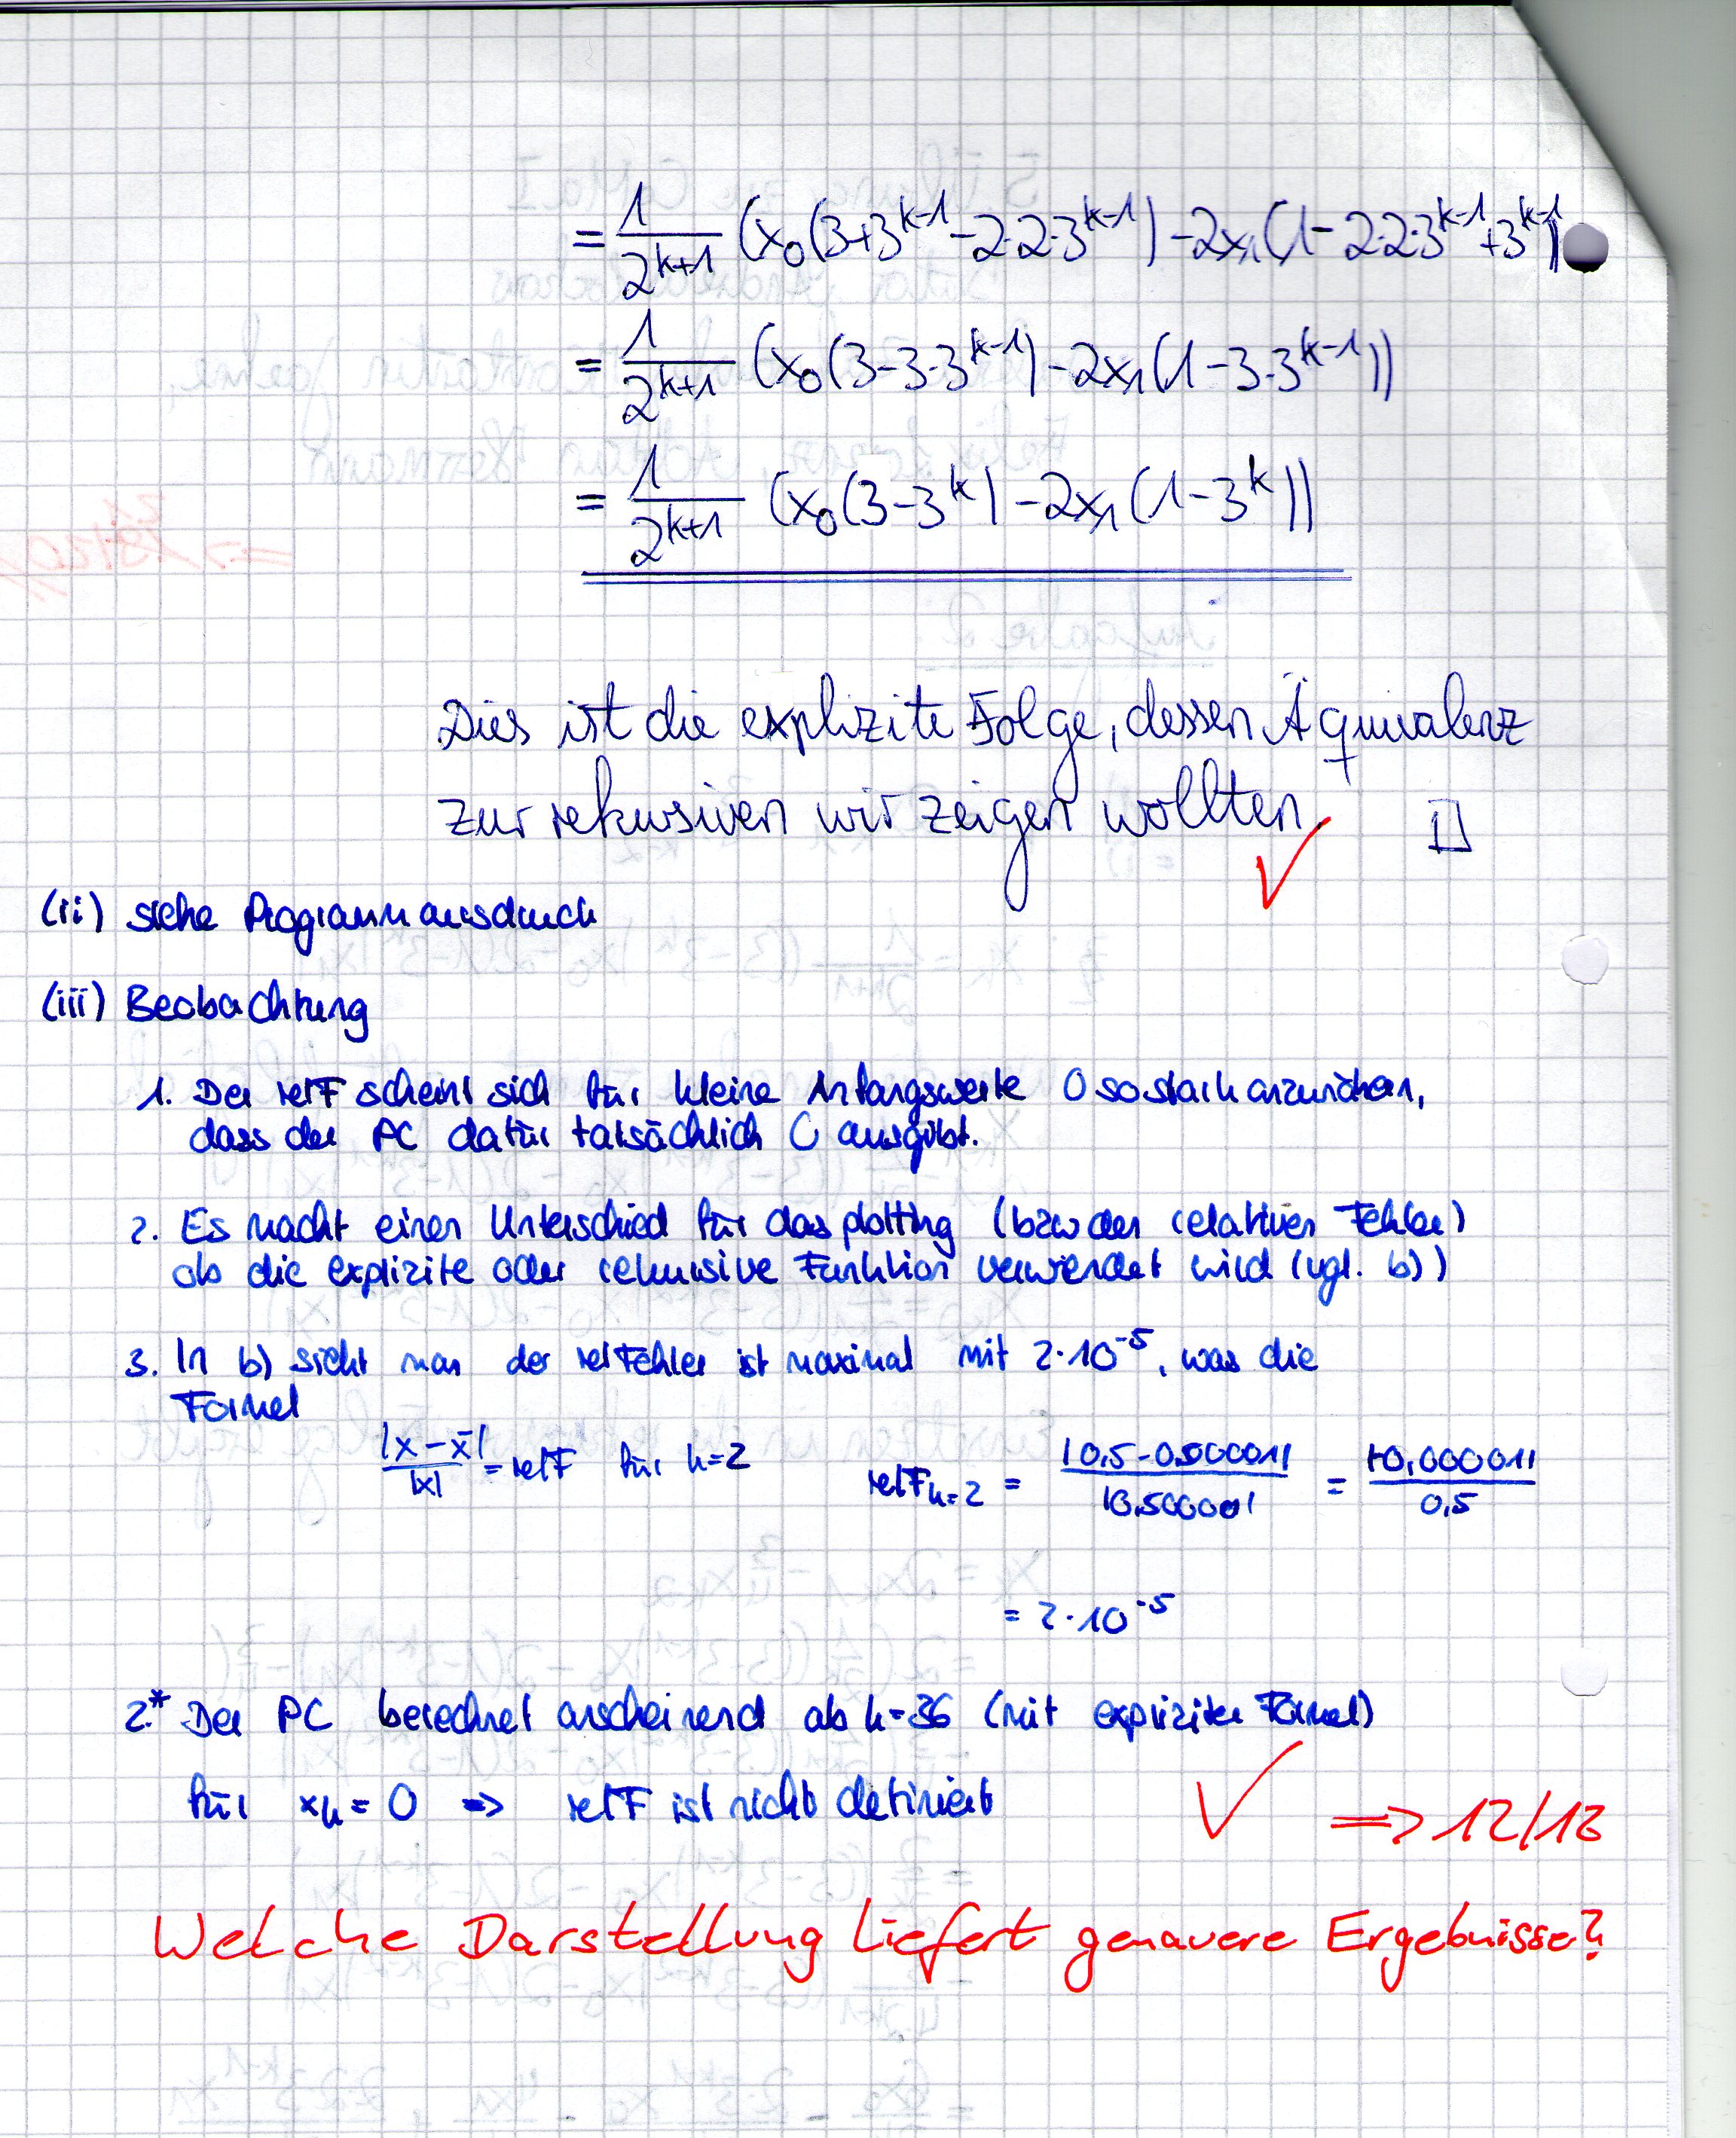 = 1/2^{k+1} (x_0(3+3^{k-1}-2·2·3^{k-1})-2x_1(1-2·2·3^{k-1}+3^{k-1}))
= 1/2^{k+1} (x_0(3-3·3^{k-1})-2x_1(1-3·3^{k-1}))
= 1/2^{k+1} (x_0(3-3^k)-2x_1(1-3^k))
Dies ist die explizite Folge, dessen Äquivalenz
zur rekursiven wir zeigen wollten.
(ii) siehe Programmausdruck
(iii) Beobachtung
1. Der relF scheint sich für kleine Anfangswerte 0 so stark anzunähern,
dass der PC dafür tatsächlich 0 ausgibt.
2. Es macht einen Unterschied für das plotting (bzw den relativen Fehler)
ob die explizite oder rekursive Funktion verwendet wird (vgl. b))
3. In b) sieht man der relFehler ist maximal mit 2·10^{-5}, was die
Formel
|x-x̄|/|x| = relF für k=2 relF_{k=2} = |0,5-0,500001|/|0,500001| = |0,000001|/0,5
= 2·10^{-5}
2.* Der PC berechnet anscheinend ab k=36 (mit expliziter Formel)
für x_k = 0 => relF ist nicht definiert
=> 12/13
Welche Darstellung liefert genauere Ergebnisse?